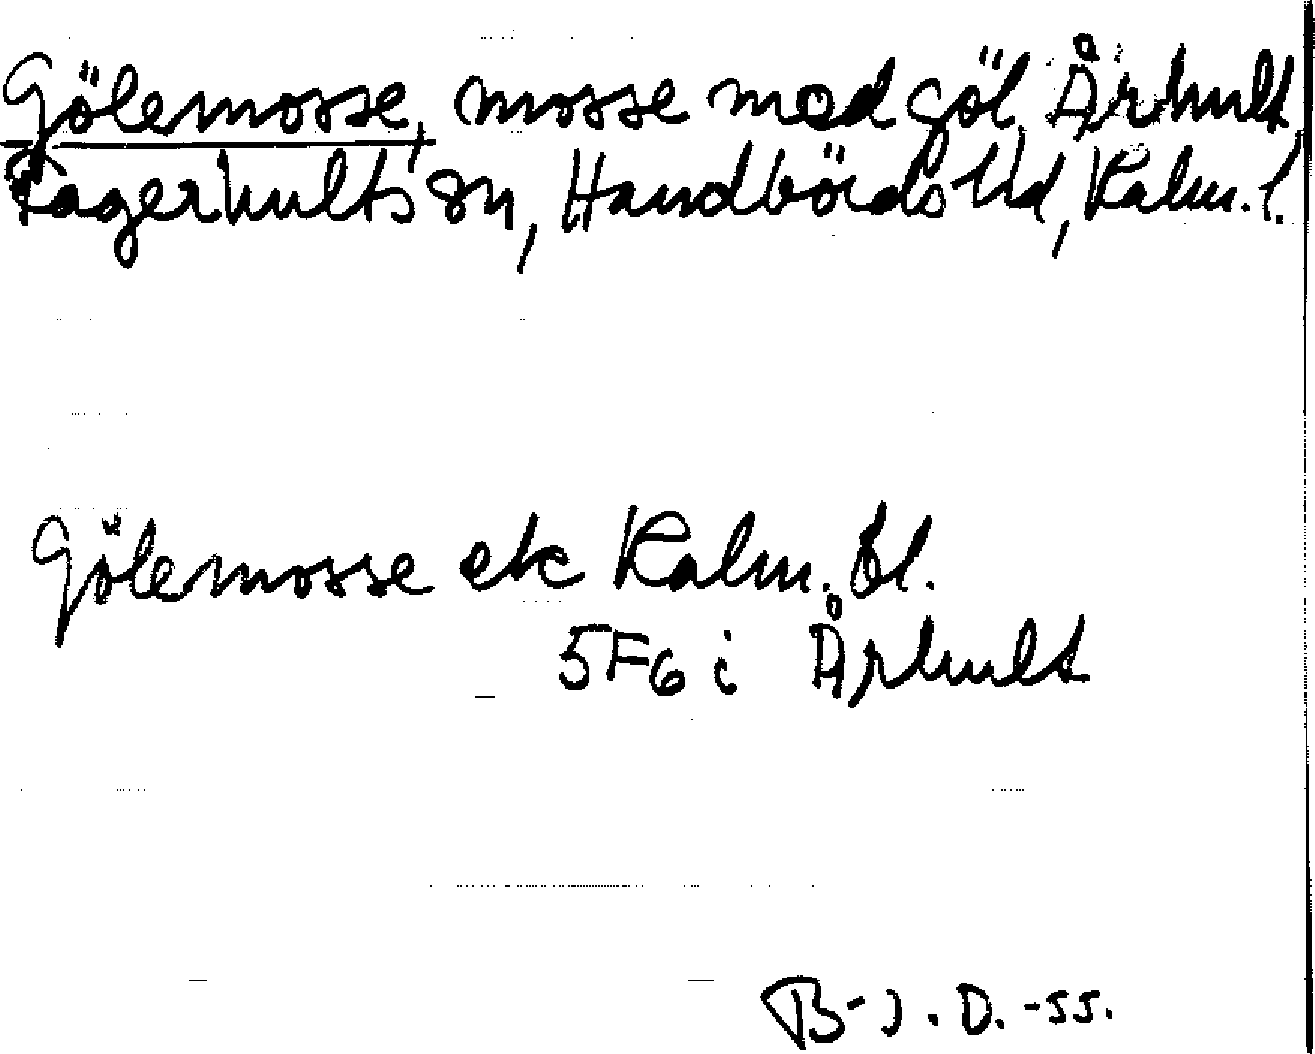 Gölemosse, mosse med göl, Århult,
Fagerhults sn, Handbörds hd, Kalm. l.
Gölemosse ek Kalm. bl.
5F6 i Århult
B-J. D. -55.